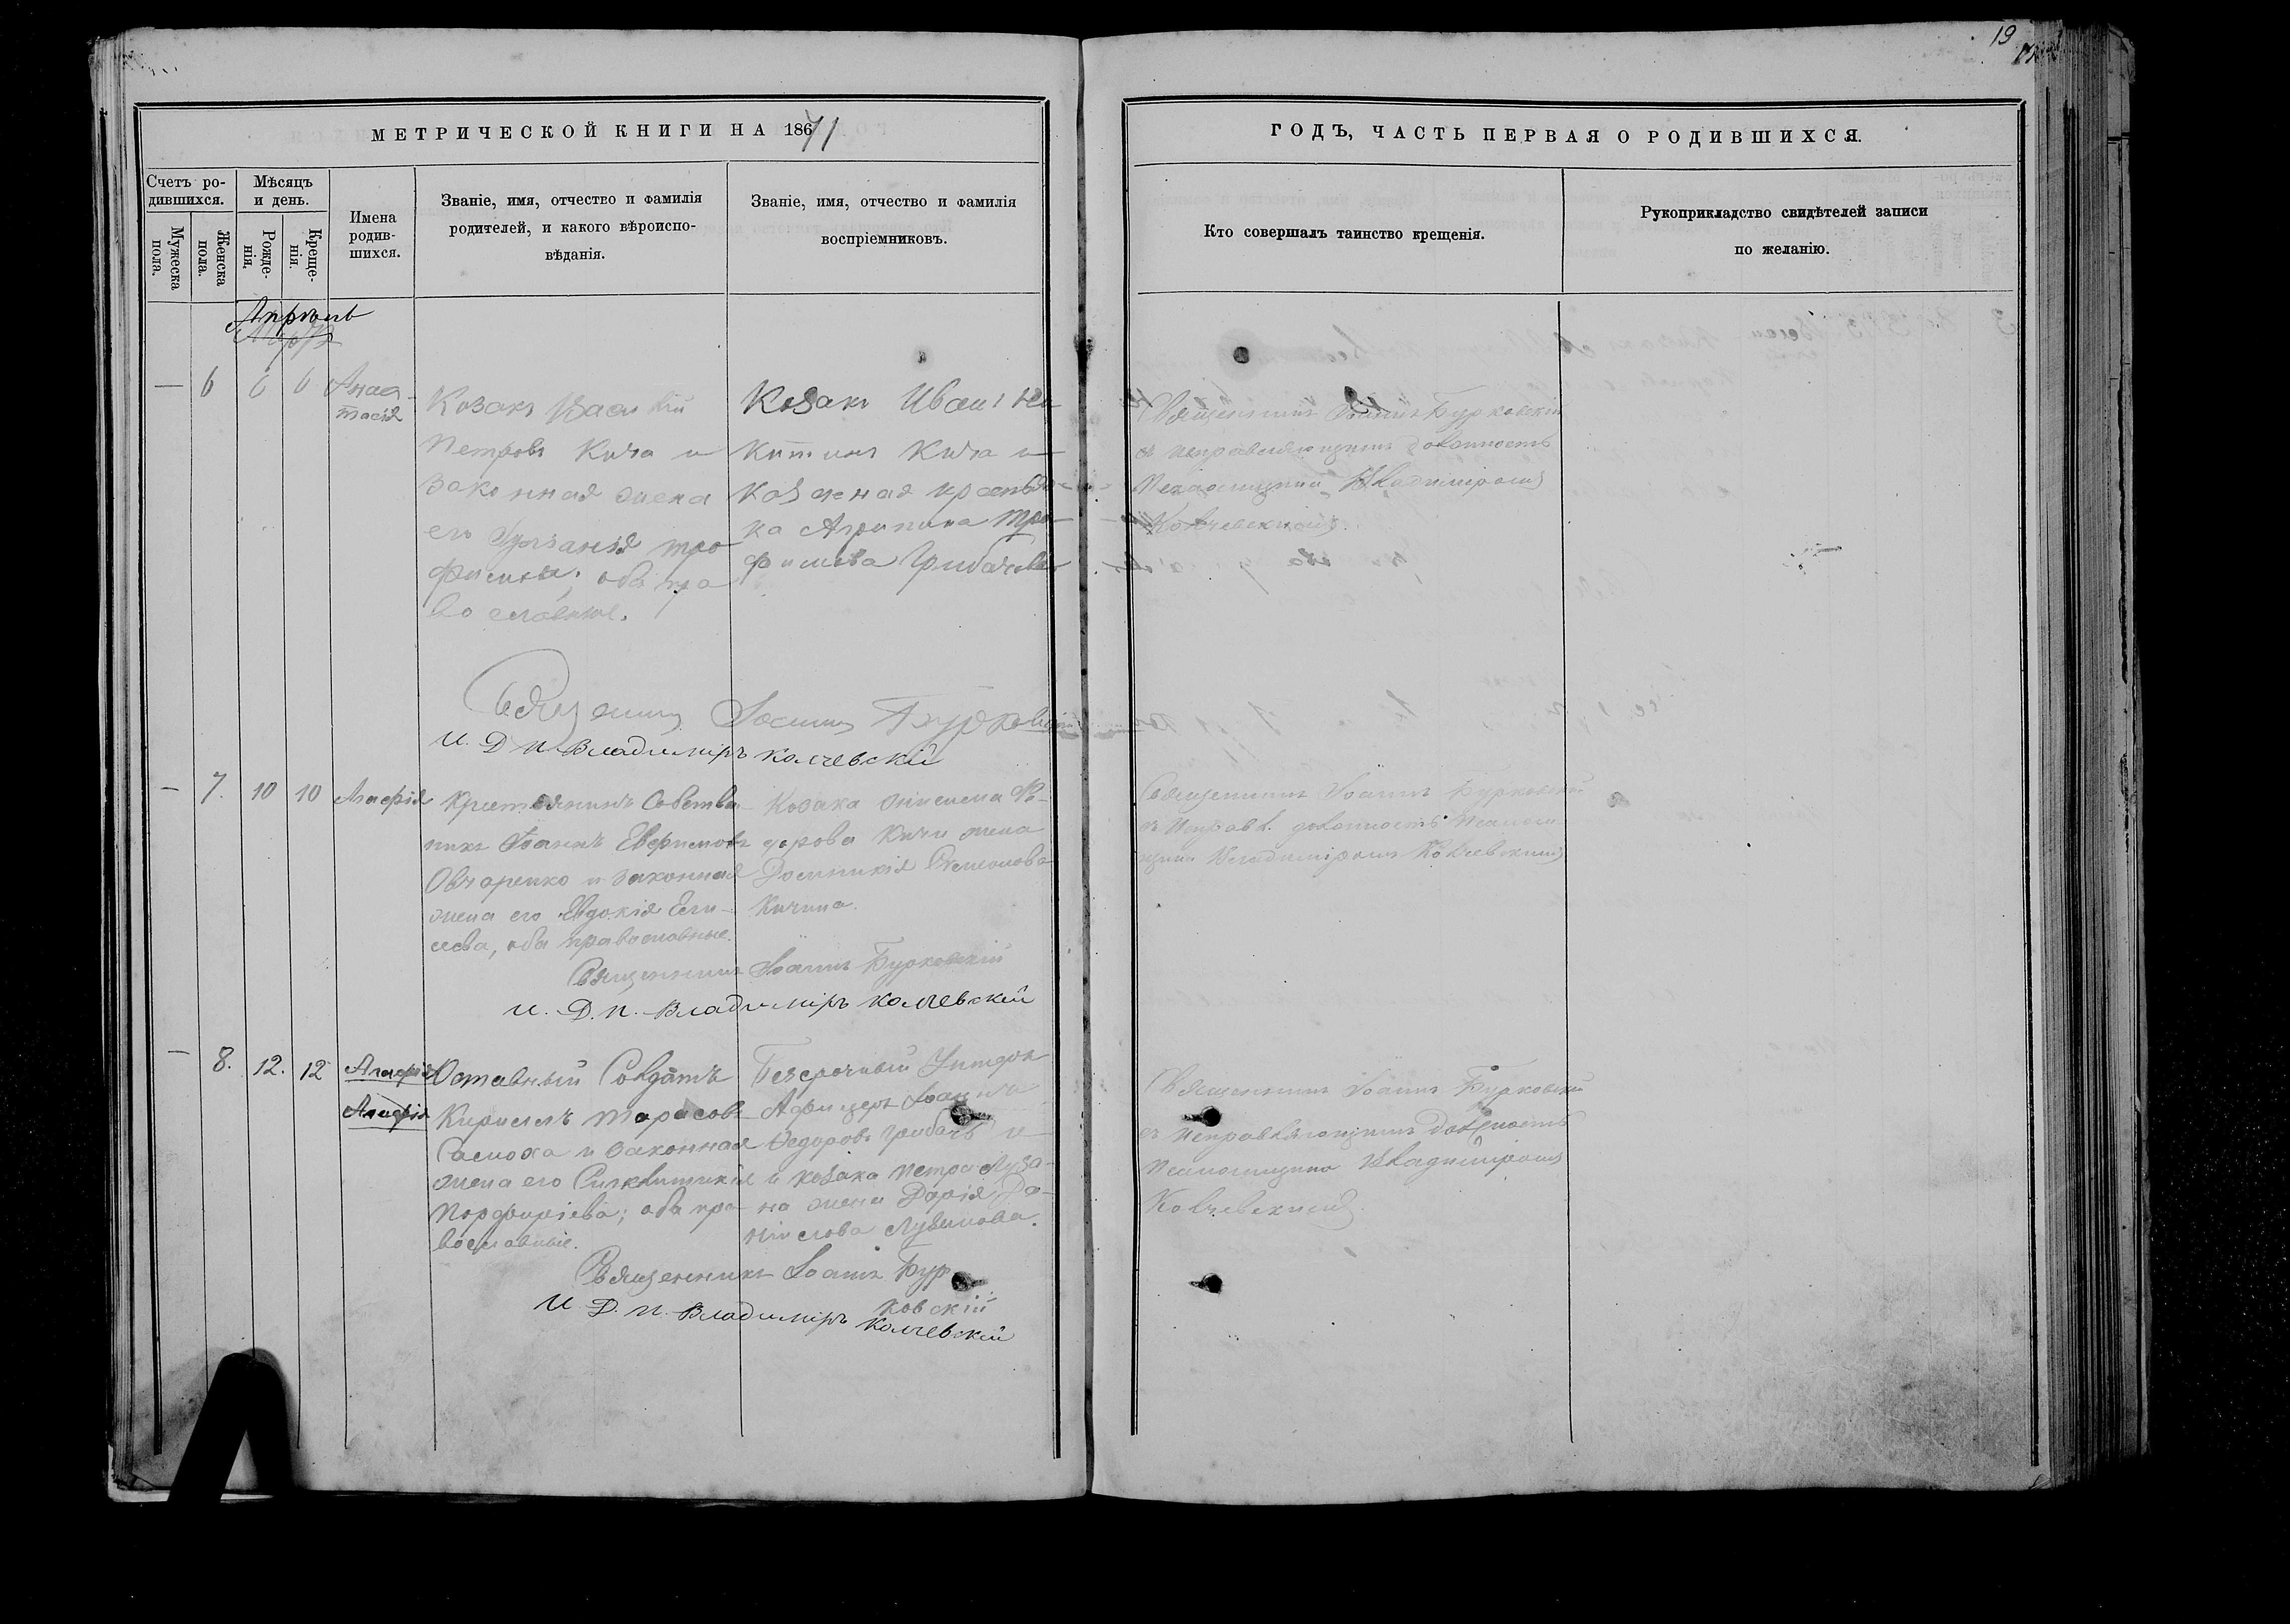 19
МЕТРИЧЕСКОЙ КНИГИ НА 1871
ГОДЪ, ЧАСТЬ ПЕРВАЯ О РОДИВШИХСЯ.
Счетъ ро-
дившихся.
Мужеска
пола.
Женска
пола.
Мѣсяцъ
и день.
Рожде-
нія.
Креще-
нія.
Имена
родив-
шихся.
Званіе, имя, отчество и фамилія
родителей, и какого вѣроиспо-
вѣданія.
Званіе, имя, отчество и фамилія
воспріемниковъ.
Кто совершалъ таинство крещенія.
Рукоприкладство свидѣтелей записи
по желанію.
Апрѣль
— 6 6 6
Анас-
тасія
Козакъ Василій
Петровъ Кича и
законная жена
его
Тро
фимова; оба пра
вославные.
Козакъ Иванъ Ни
китинъ Кича и
ка Агрипина Тро-
фимова Грибачева
Священникъ Іоаннъ Бурковскій
съ исправляющимъ должность
Псаломщика Владиміромъ
Колчевскимъ.
Священникъ Іоаннъ Бурковскій
И. Д. П. Владиміръ Колчевскій
— 7. 10 10
Агафія
Крестьянинъ Собствен-
никъ Іоаннъ Евфимовъ
Овчаренко и законная
жена его Евдокія
оба православные.
Козака
дорова Кичи жена
Домникія Симеонова
Кичина.
Священникъ Іоаннъ Бурковскій
съ исправл. должность Псалом
щика Владиміромъ Колчевскимъ
Священникъ Іоаннъ Бурковскій
И. Д. П. Владиміръ Колчевскій
— 8. 12. 12
Агафія
Агафія
Отставный Солдатъ
Кириллъ Тарасовъ
и законная
жена его
Порфиріева; оба пра-
вославные.
Безсрочный Унтеръ
Афицеръ Іоаннъ
Федоровъ Грибачъ и
козака Петра Луза-
на жена Дарія Да-
ніилова
Священникъ Іоаннъ Бурковскій
съ исправляющимъ должность
Псаломщика Владиміромъ
Колчевскимъ.
Священникъ Іоаннъ Бур
ковскій
И. Д. П. Владиміръ Колчевскій